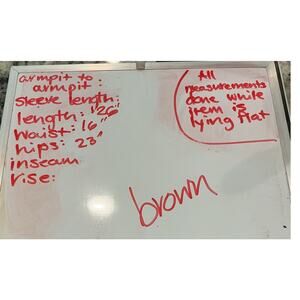 armpit to
armpit:
sleeve length:
length: "26"
Waist: 16"
hips: 23"
inseam
rise:
All
measurements
done while
item is
lying flat
brown